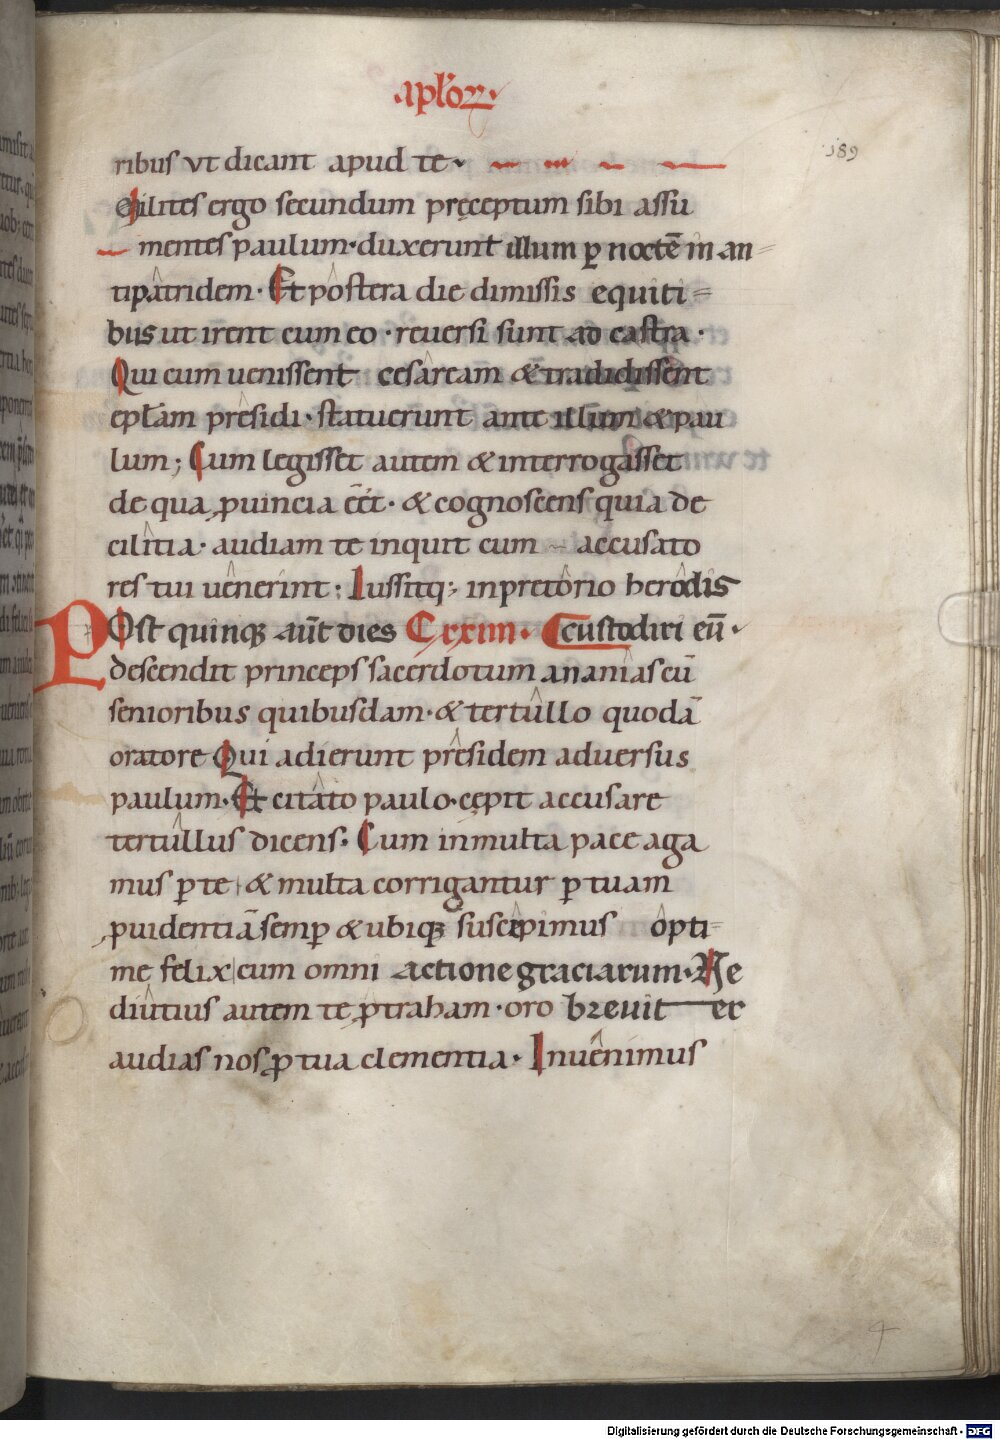 apłoꝝ·
189
ribus vt dicant apud te·
Milites ergo secundum pręceptum sibi assu
mentes paulum· duxerunt illum ꝑ noctē in an=
tipâtridem· Et pôstera die dimissis equiti=
bus ut irent cum eo· reuersi sunt ad castra·
Qui cum uenissent cesâream & tradidissent
epłam prêsidi· statuerunt ante illum & pau
lum; Cum legisset autem & interrogâsset
de qua ꝓuincia eēt· & cognoscens quia de
cilîtia· audiam te inquit cum – accusato
res tui uênerint: Iussitq; in pretôrio herôdis
POst quinqꝫ aūt dies C xxiiii· custodiri eū·
descendit princeps sacerdotum ananîas cū
senioribus quibusdam· & tertûllo quodā
oratore Qui adierunt prêsidem adversus
paulum· Et citâto paulo· cępit accusare
tertûllus dicens· Cum in multa pace aga
mus ꝑ te & multa corrigantur ꝑ tuam
ꝓuidentiā semꝑ & ubiqꝫ suscêpimus ôpti=
me felix cum omni actione graciarum· Ne
diûtius autem te ꝓtraham· oro brevit er
audias nos ꝓ tua clementia· Inuênimus
4
Digitalisierung gefördert durch die Deutsche Forschungsgemeinschaft - DFG